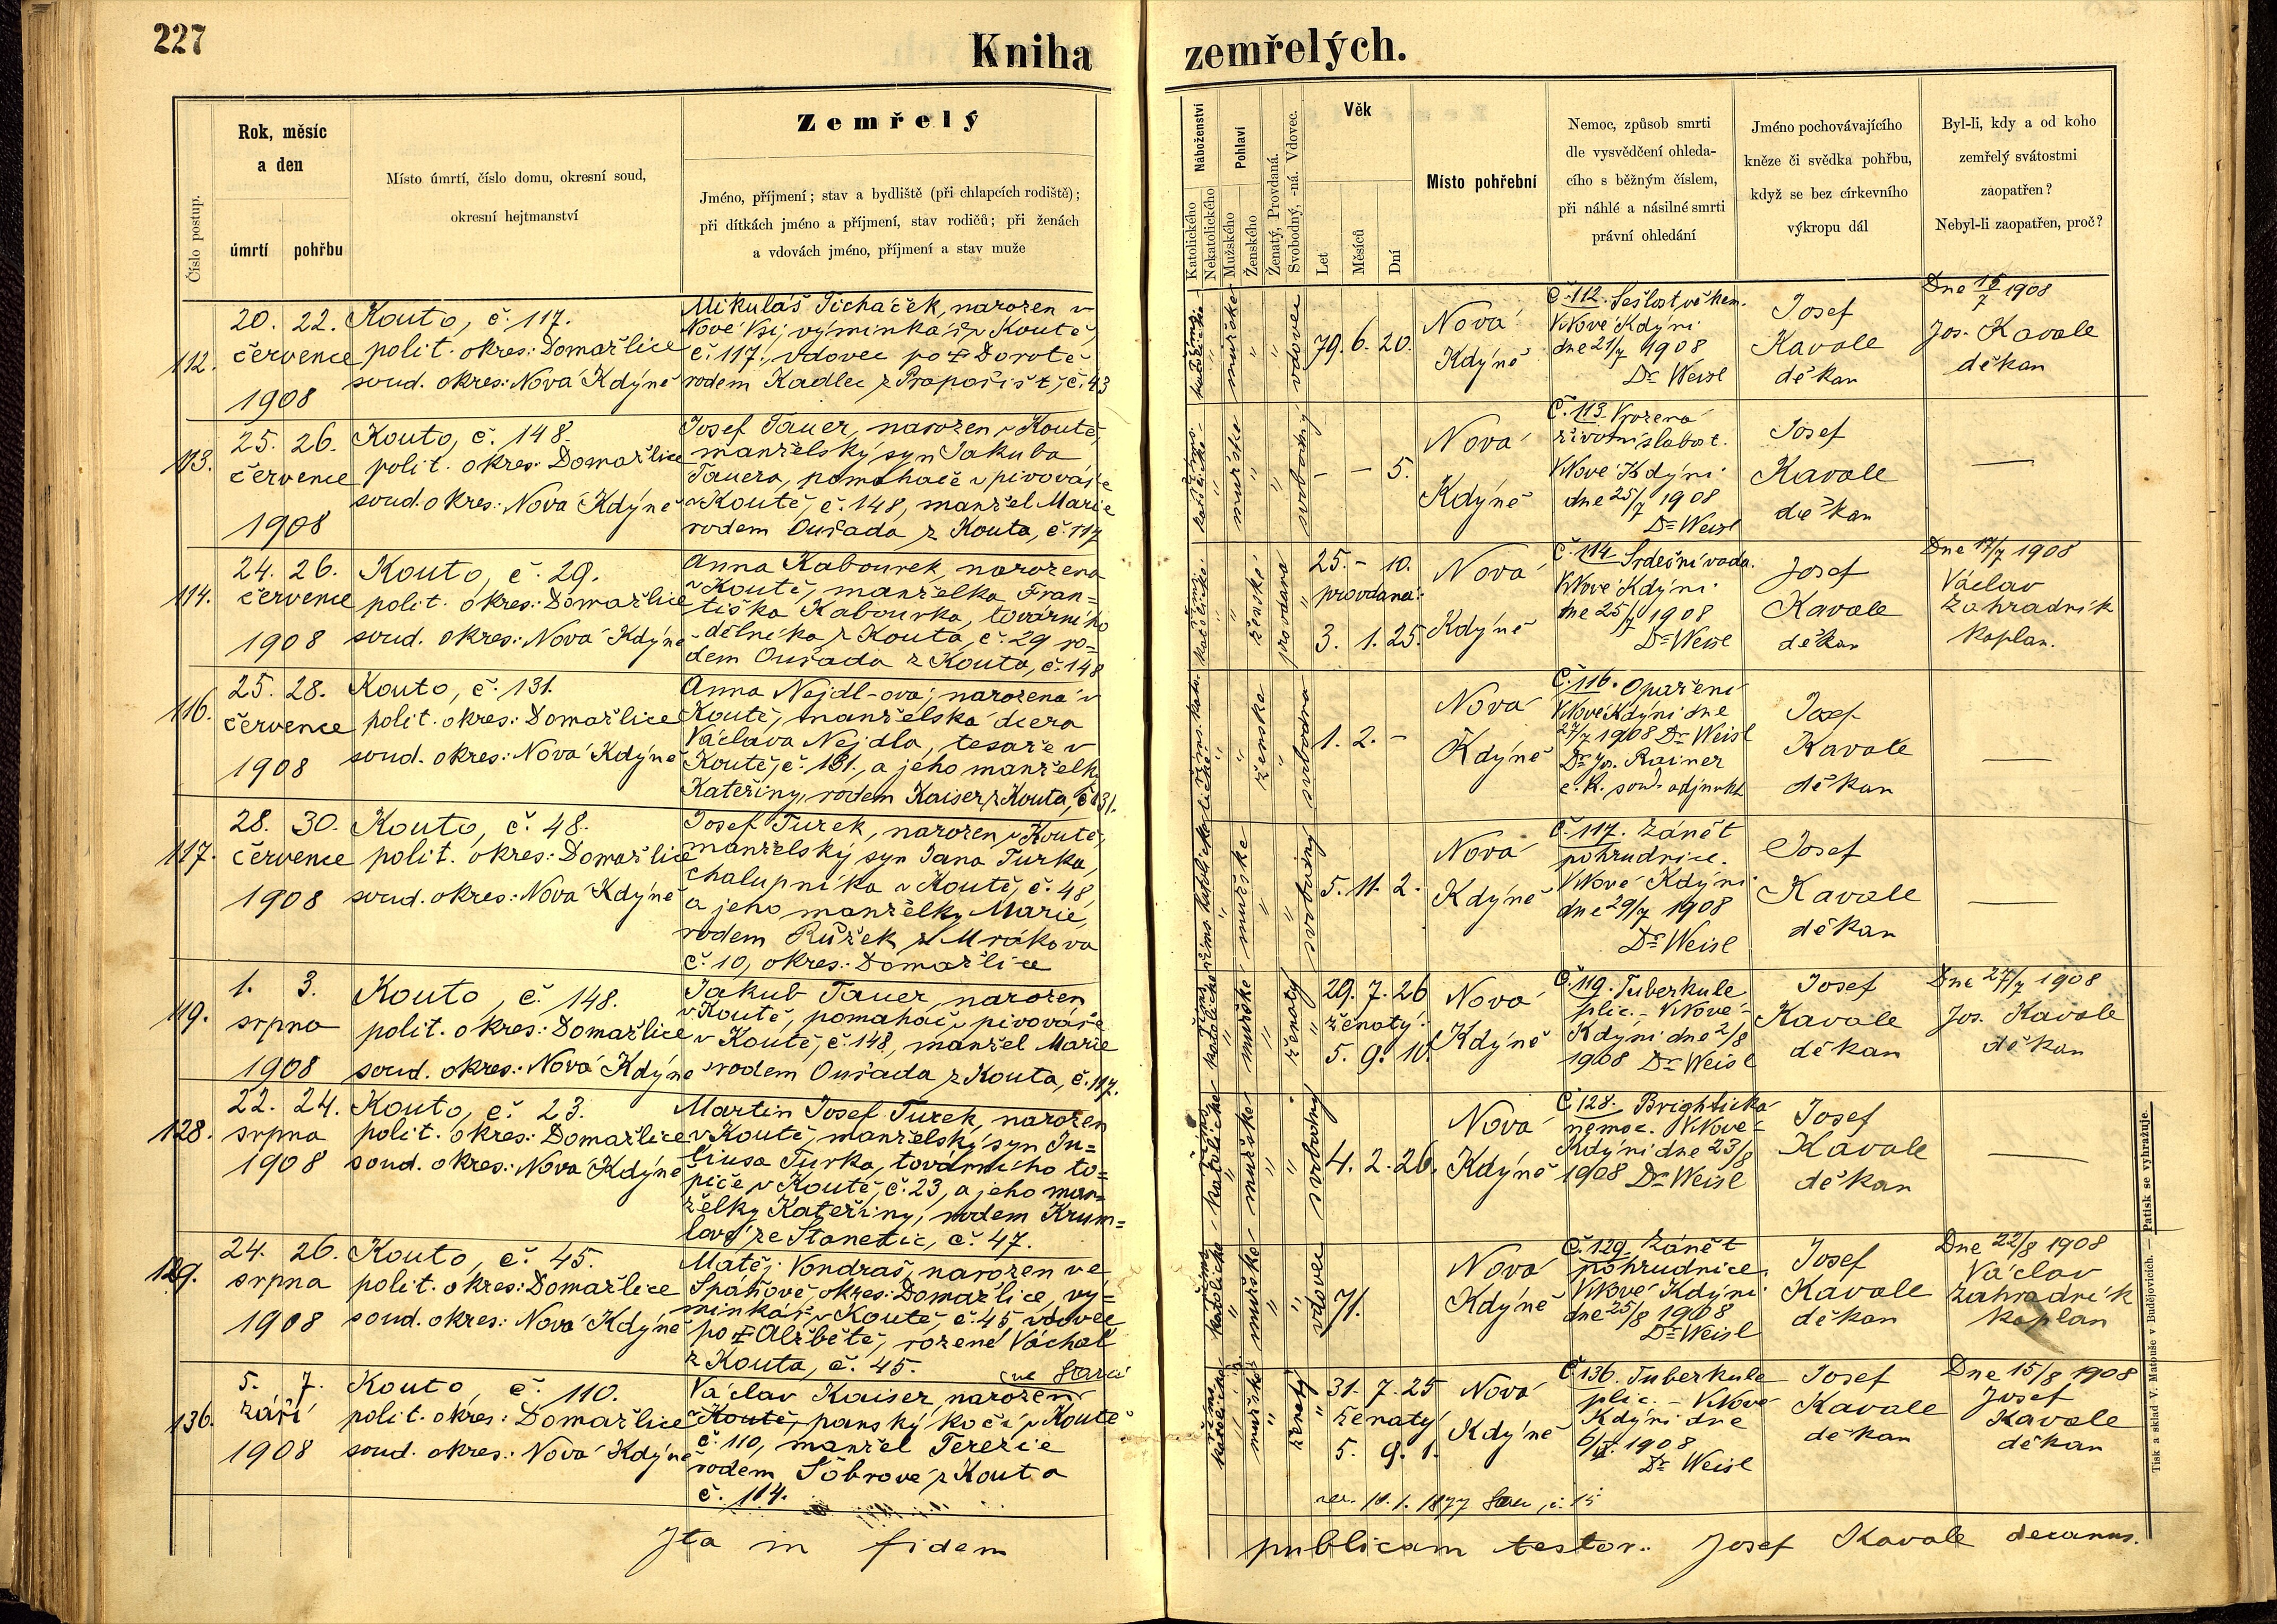 227
Kniha zemřelých.
Číslo postup.
Rok, měsíc
a den
úmrtí
pohřbu
Místo úmrtí, číslo domu, okresní soud,
okresní hejtmanství
Zemřelý
Jméno, příjmení; stav a bydliště (při chlapcích rodiště);
při dítkách jméno a příjmení, stav rodičů; při ženách
a vdovách jméno, příjmení a stav muže
Náboženství
Katolického
Nekatolického
Pohlaví
Mužského
Ženského
Ženatý, Provdaná.
Svobodný, -ná. Vdovec.
Věk
Let
Měsíců
Dní
Místo pohřební
Nemoc, způsob smrti
dle vysvědčení ohleda-
cího s běžným číslem,
při náhlé a násilné smrti
právní ohledání
Jméno pochovávajícího
kněze či svědka pohřbu,
když se bez církevního
výkropu dál
Byl-li, kdy a od koho
zemřelý svátostmi
zaopatřen?
Nebyl-li zaopatřen, proč?
112.
20. 22.
července
1908
Kouto, č. 117.
polit. okres: Domažlice
soud. okres: Nová Kdýně
Mikuláš Ticháček, narozen v
Nové Vsi, výminkář v Koutě,
č. 117., vdovec po † Dorotě
rodem Kadlec z Propořišť, č. 43
říms. katolické
mužské
vdovec
79. 6. 20.
Nová
Kdýně
Č. 112. Sešlost věkem.
V Nové Kdýni
dne 21/7 1908
Dr Weisl
Josef
Kavale
děkan
Dne 16/7 1908
Jos. Kavale
děkan
113.
25. 26.
července
1908
Kouto, č. 148.
polit. okres: Domažlice
soud. okres: Nová Kdýně
Josef Tauer, narozen v Koutě,
manželský syn Jakuba
Tauera, pomahače v pivováře
v Koutě, č. 148, manžel Marie
rodem Ouřada z Kouta, č. 117
říms. katolické
mužské
svobodný
– – 5.
Nová
Kdýně
Č. 113. Vrozená
životní slabost.
V Nové Kdýni
dne 25/7 1908
Dr Weisl
Josef
Kavale
děkan
—
114.
24. 26.
července
1908
Kouto, č. 29.
polit. okres: Domažlice
soud. okres: Nová Kdýně
Anna Kabourek, narozena
v Koutě, manželka Fran=
tiška Kabourka, továrního
dělníka z Kouta, č. 29 ro=
dem Ouřada z Kouta, č. 148
říms. katolické
ženské
provdaná
25. – 10.
provdaná:
3. 1. 25.
Nová
Kdýně
Č. 114 Srdeční vada.
V Nové Kdýni
dne 25/7 1908
Dr Weisl
Josef
Kavale
děkan
Dne 17/7 1908
Václav
Zahradník
kaplan.
116.
25. 28.
července
1908
Kouto, č. 131.
polit. okres: Domažlice
soud. okres: Nová Kdýně
Anna Nejdl-ová, narozena v
Koutě, manželská dcera
Václava Nejdla, tesaře v
Koutě, č. 131., a jeho manželky
Kateřiny, rodem Kaiser, z Kouta, č. 131.
říms. kato-
lické
ženské
svobodná
1. 2. –
Nová
Kdýně
Č. 116. Opaření
V Nové Kdýni dne
27/7 1908 Dr Weisl
Dr Jos. Rainer
c. k. soud. adjunkt
Josef
Kavale
děkan
—
117.
28. 30.
července
1908
Kouto, č. 48.
polit. okres: Domažlice
soud. okres: Nová Kdýně
Josef Turek, narozen v Koutě,
manželský syn Jana Turka,
chalupníka v Koutě, č. 48,
a jeho manželky Marie,
rodem Růžek z Mrákova
č. 10, okres: Domažlice
říms. katolické
mužské
svobodný
5. 11. 2.
Nová
Kdýně
Č. 117. Zánět
pohrudnice.
V Nové Kdýni
dne 29/7 1908
Dr Weisl
Josef
Kavale
děkan
—
119.
1. 3.
srpna
1908
Kouto, č. 148.
polit. okres: Domažlice
soud. okres: Nová Kdýně
Jakub Tauer, narozen
v Koutě, pomahač v pivováře
v Koutě, č. 148, manžel Marie
rodem Ouřada z Kouta, č. 117.
říms. katolické
mužské
ženatý
29. 7. 26
ženatý:
5. 9. 10
Nová
Kdýně
Č. 119. Tuberkule
plic. – V Nové
Kdýni dne 2/8
1908 Dr Weisl
Josef
Kavale
děkan
Dne 27/7 1908
Jos. Kavale
děkan
128.
22. 24.
srpna
1908
Kouto, č. 23.
polit. okres: Domažlice
soud. okres: Nová Kdýně
Martin Josef Turek, narozen
v Koutě, manželský syn Ju=
liusa Turka, továrního to=
piče v Koutě, č. 23, a jeho man=
želky Kateřiny, rodem Krum=
lová ze Stanětic, č. 47.
říms. katolické
mužské
svobodný
4. 2. 26.
Nová
Kdýně
Č. 128. Brightická
nemoc. V Nové
Kdýni dne 23/8
1908 Dr Weisl
Josef
Kavale
děkan
—
129.
24. 26.
srpna
1908
Kouto, č. 45.
polit. okres: Domažlice
soud. okres: Nová Kdýně
Matěj Vondraš, narozen ve
Spáňově, okres: Domažlice, vý=
minkář v Koutě č. 45 vdovec
po † Alžbětě, rozené Váchal
z Kouta, č. 45.
říms. katolické
mužské
vdovec
71.
Nová
Kdýně
Č. 129. Zánět
pohrudnice
V Nové Kdýni
dne 25/8 1908
Dr Weisl
Josef
Kavale
děkan
Dne 22/8 1908
Václav
Zahradník
kaplan
136.
5. 7.
září
1908
Kouto, č. 110.
polit. okres: Domažlice
soud. okres: Nová Kdýně
Václav Kaiser, narozen
v Koutě, panský kočí v Koutě
č. 110, manžel Terezie
rodem Šobrové z Kouta
č. 114.
říms. katolické
mužské
ženatý
31. 7. 25
ženatý
5. 9. 1.
Nová
Kdýně
Č. 136. Tuberkule
plic. – V Nové
Kdýni dne
6/IX. 1908
Dr Weisl
Josef
Kavale
děkan
Dne 15/8 1908
Josef
Kavale
děkan
10. 1. 1877 č. 15
Ita in fidem publicam testor. Josef Kavale decanus.
Tisk a sklad V. Matouše v Budějovicích. — Patisk se vyhražuje.